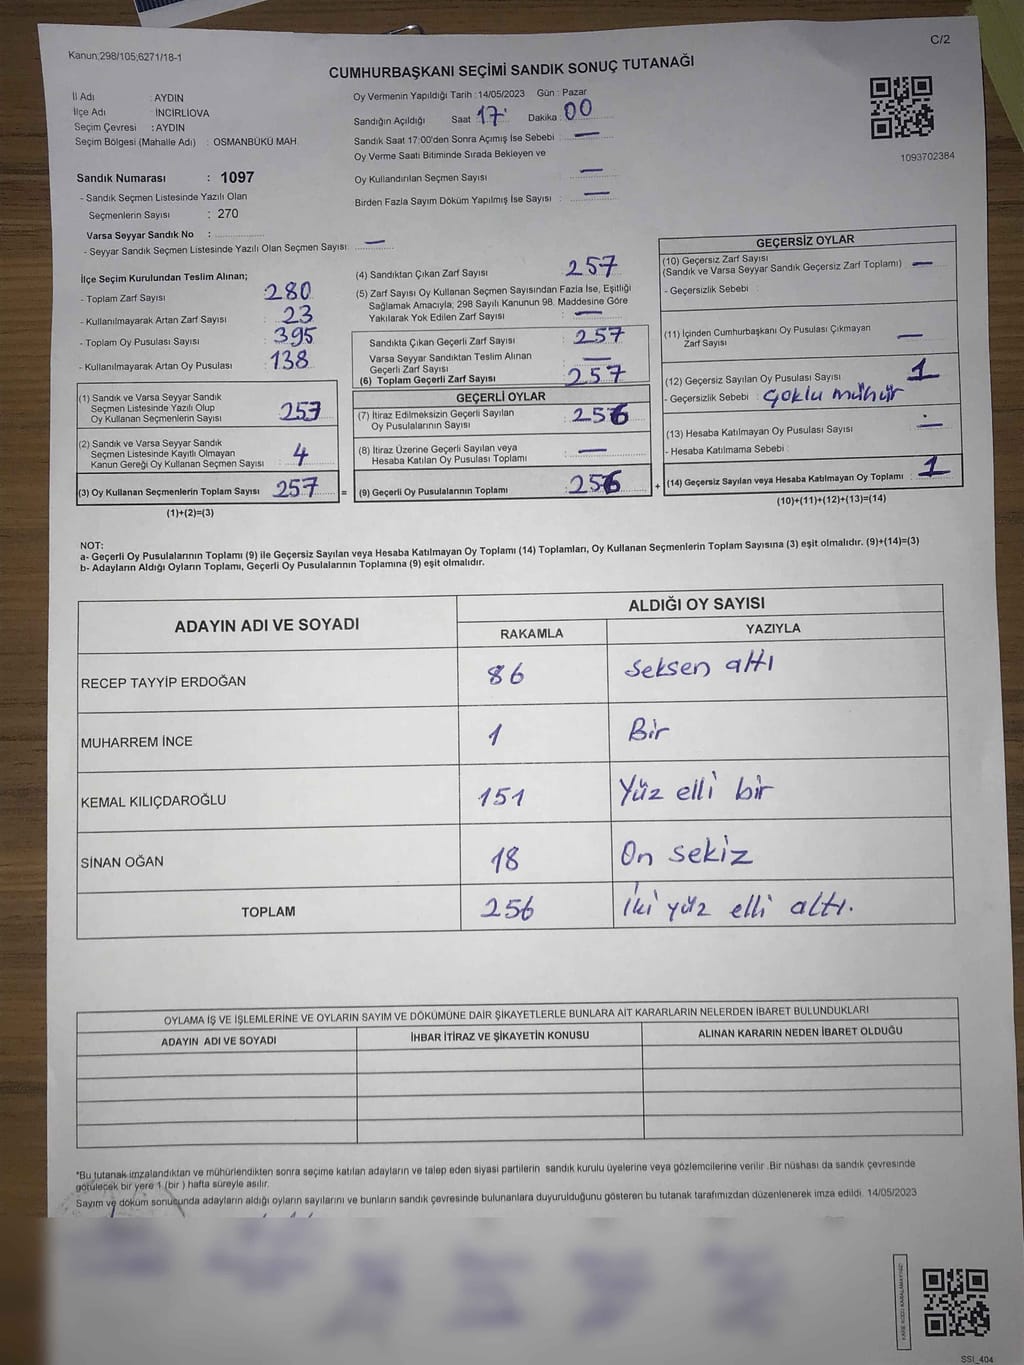 Kanun;298/105;6271/18-1
C/2
CUMHURBAŞKANI SEÇİMİ SANDIK SONUÇ TUTANAĞI
İl Adı : AYDIN
İlçe Adı : İNCİRLİOVA
Seçim Çevresi : AYDIN
Seçim Bölgesi (Mahalle Adı) : OSMANBÜKÜ MAH.
Oy Vermenin Yapıldığı Tarih : 14/05/2023 Gün : Pazar
Sandığın Açıldığı Saat 17 Dakika 00
Sandık Saat 17:00'den Sonra Açımış İse Sebebi : —
Oy Verme Saati Bitiminde Sırada Bekleyen ve
Oy Kullandırılan Seçmen Sayısı —
Birden Fazla Sayım Döküm Yapılmış İse Sayısı : —
1093702384
Sandık Numarası : 1097
- Sandık Seçmen Listesinde Yazılı Olan
Seçmenlerin Sayısı : 270
Varsa Seyyar Sandık No :
- Seyyar Sandık Seçmen Listesinde Yazılı Olan Seçmen Sayısı: —
İlçe Seçim Kurulundan Teslim Alınan;
- Toplam Zarf Sayısı : 280
- Kullanılmayarak Artan Zarf Sayısı : 23
- Toplam Oy Pusulası Sayısı : 395
- Kullanılmayarak Artan Oy Pusulası : 138
(1) Sandık ve Varsa Seyyar Sandık
Seçmen Listesinde Yazılı Olup
Oy Kullanan Seçmenlerin Sayısı : 253
(2) Sandık ve Varsa Seyyar Sandık
Seçmen Listesinde Kayıtlı Olmayan
Kanun Gereği Oy Kullanan Seçmen Sayısı : 4
(3) Oy Kullanan Seçmenlerin Toplam Sayısı : 257 =
(1)+(2)=(3)
(4) Sandıktan Çıkan Zarf Sayısı : 257
(5) Zarf Sayısı Oy Kullanan Seçmen Sayısından Fazla İse, Eşitliği
Sağlamak Amacıyla; 298 Sayılı Kanunun 98. Maddesine Göre
Yakılarak Yok Edilen Zarf Sayısı : —
Sandıkta Çıkan Geçerli Zarf Sayısı : 257
Varsa Seyyar Sandıktan Teslim Alınan
Geçerli Zarf Sayısı : —
(6) Toplam Geçerli Zarf Sayısı : 257
GEÇERLİ OYLAR
(7) İtiraz Edilmeksizin Geçerli Sayılan
Oy Pusulalarının Sayısı : 256
(8) İtiraz Üzerine Geçerli Sayılan veya
Hesaba Katılan Oy Pusulası Toplamı : —
(9) Geçerli Oy Pusulalarının Toplamı : 256 +
GEÇERSİZ OYLAR
(10) Geçersiz Zarf Sayısı
(Sandık ve Varsa Seyyar Sandık Geçersiz Zarf Toplamı) : —
- Geçersizlik Sebebi :
(11) İçinden Cumhurbaşkanı Oy Pusulası Çıkmayan
Zarf Sayısı : —
(12) Geçersiz Sayılan Oy Pusulası Sayısı : 1
- Geçersizlik Sebebi : Çoklu mühür
(13) Hesaba Katılmayan Oy Pusulası Sayısı : —
- Hesaba Katılmama Sebebi :
(14) Geçersiz Sayılan veya Hesaba Katılmayan Oy Toplamı : 1
(10)+(11)+(12)+(13)=(14)
NOT:
a- Geçerli Oy Pusulalarının Toplamı (9) ile Geçersiz Sayılan veya Hesaba Katılmayan Oy Toplamı (14) Toplamları, Oy Kullanan Seçmenlerin Toplam Sayısına (3) eşit olmalıdır. (9)+(14)=(3)
b- Adayların Aldığı Oyların Toplamı, Geçerli Oy Pusulalarının Toplamına (9) eşit olmalıdır.
ADAYIN ADI VE SOYADI
ALDIĞI OY SAYISI
RAKAMLA YAZIYLA
RECEP TAYYİP ERDOĞAN 86 Seksen altı
MUHARREM İNCE 1 Bir
KEMAL KILIÇDAROĞLU 151 Yüz elli bir
SİNAN OĞAN 18 On sekiz
TOPLAM 256 İki yüz elli altı.
OYLAMA İŞ VE İŞLEMLERİNE VE OYLARIN SAYIM VE DÖKÜMÜNE DAİR ŞİKAYETLERLE BUNLARA AİT KARARLARIN NELERDEN İBARET BULUNDUKLARI
ADAYIN ADI VE SOYADI İHBAR İTİRAZ VE ŞİKAYETİN KONUSU ALINAN KARARIN NEDEN İBARET OLDUĞU
*Bu tutanak imzalandıktan ve mühürlendikten sonra seçime katılan adayların ve talep eden siyasi partilerin sandık kurulu üyelerine veya gözlemcilerine verilir .Bir nüshası da sandık çevresinde
görülecek bir yere 1 (bir ) hafta süreyle asılır.
Sayım ve döküm sonucunda adayların aldığı oyların sayılarını ve bunların sandık çevresinde bulunanlara duyurulduğunu gösteren bu tutanak tarafımızdan düzenlenerek imza edildi. 14/05/2023
KARE KODU KARALAMAYINIZ!
SSI_404